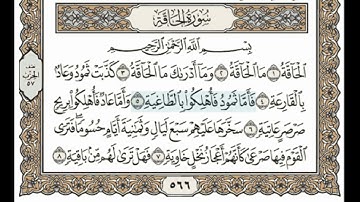 سُورَةُ الْحَاقَّةِ
بِسْمِ اللَّهِ الرَّحْمَٰنِ الرَّحِيمِ
الْحَاقَّةُ ١ مَا الْحَاقَّةُ ٢ وَمَا أَدْرَاكَ مَا الْحَاقَّةُ ٣ كَذَّبَتْ ثَمُودُ وَعَادٌ
بِالْقَارِعَةِ ٤ فَأَمَّا ثَمُودُ فَأُهْلِكُوا بِالطَّاغِيَةِ ٥ وَأَمَّا عَادٌ فَأُهْلِكُوا بِرِيحٍ
صَرْصَرٍ عَاتِيَةٍ ٦ سَخَّرَهَا عَلَيْهِمْ سَبْعَ لَيَالٍ وَثَمَانِيَةَ أَيَّامٍ حُسُومًا فَتَرَى
الْقَوْمَ فِيهَا صَرْعَىٰ كَأَنَّهُمْ أَعْجَازُ نَخْلٍ خَاوِيَةٍ ٧ فَهَلْ تَرَىٰ لَهُم مِّن بَاقِيَةٍ ٨
الحزب
٥٧
٥٦٦